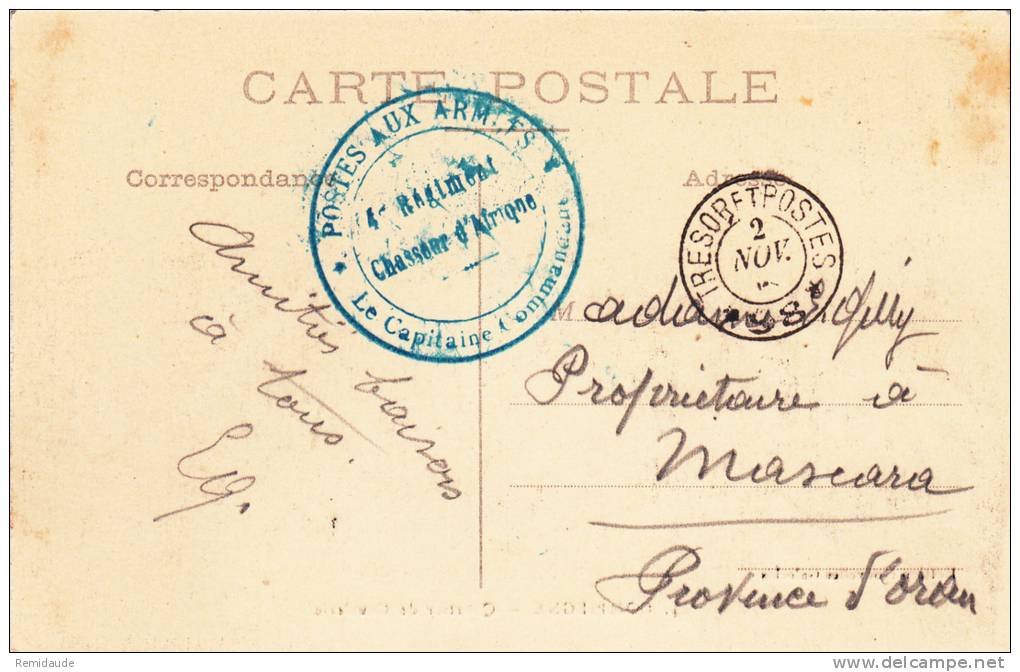 CARTE POSTALE
Correspondance
Adresse
POSTES AUX ARMÉES
4e Régiment
Chasseur d'Afrique
Le Capitaine Commandant
TRESOR ET POSTES
2
NOV.
98
amitiés baisers
à
tous.
M
Propriétaire à
Mascara
Province d'Oran
Remidaude
delcampe.net